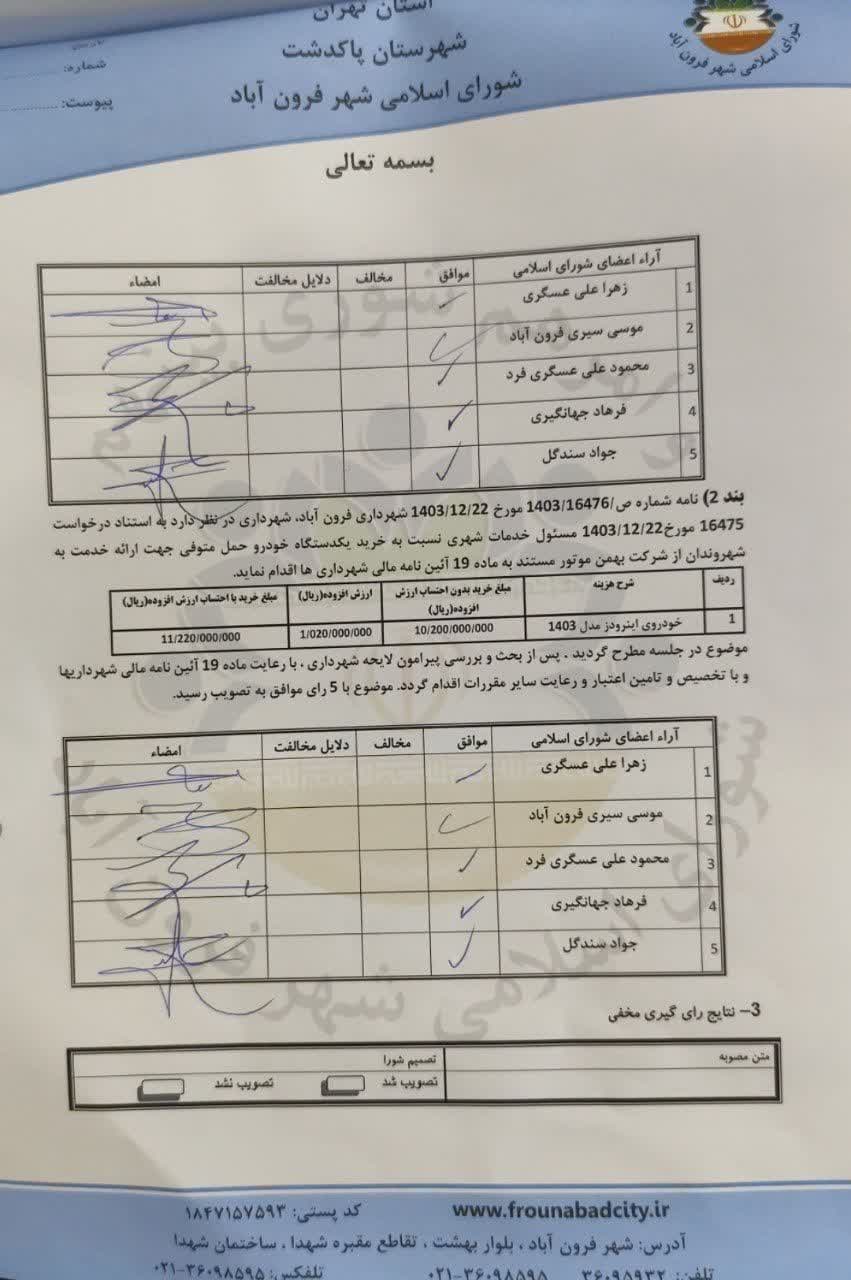 استان تهران
شهرستان پاکدشت
شورای اسلامی شهر فرون آباد
شماره:
پیوست:
شورای اسلامی شهر فرون آباد
بسمه تعالی
آراء اعضای شورای اسلامی موافق مخالف دلایل مخالفت امضاء
1 زهرا علی عسگری
2 موسی سیری فرون آباد
3 محمود علی عسگری فرد
4 فرهاد جهانگیری
5 جواد سندگل
بند 2) نامه شماره ص/1403/16476 مورخ 1403/12/22 شهرداری فرون آباد، شهرداری در نظر دارد به استناد درخواست
16475 مورخ1403/12/22 مسئول خدمات شهری نسبت به خرید یکدستگاه خودرو حمل متوفی جهت ارائه خدمت به
شهروندان از شرکت بهمن موتور مستند به ماده 19 آئین نامه مالی شهرداری ها اقدام نماید.
ردیف شرح هزینه مبلغ خرید بدون احتساب ارزش افزوده(ریال) ارزش افزوده(ریال) مبلغ خرید با احتساب ارزش افزوده(ریال)
1 خودروی اینرودز مدل 1403 10/200/000/000 1/020/000/000 11/220/000/000
موضوع در جلسه مطرح گردید . پس از بحث و بررسی پیرامون لایحه شهرداری ، با رعایت ماده 19 آئین نامه مالی شهرداریها
و با تخصیص و تامین اعتبار و رعایت سایر مقررات اقدام گردد. موضوع با 5 رای موافق به تصویب رسید.
آراء اعضای شورای اسلامی موافق مخالف دلایل مخالفت امضاء
1 زهرا علی عسگری
2 موسی سیری فرون آباد
3 محمود علی عسگری فرد
4 فرهاد جهانگیری
5 جواد سندگل
3– نتایج رای گیری مخفی
متن مصوبه تصمیم شورا
تصویب شد تصویب نشد
www.frounabadcity.ir کد پستی: ۱۸۴۷۱۵۷۵۹۳
آدرس: شهر فرون آباد ، بلوار بهشت ، تقاطع مقبره شهدا ، ساختمان شهدا
تلفن: ۳۶۰۹۵۹۳۲ ۰۲۱-۳۶۰۹۸۵۹۵ تلفکس: ۰۲۱-۳۶۰۹۸۵۹۵